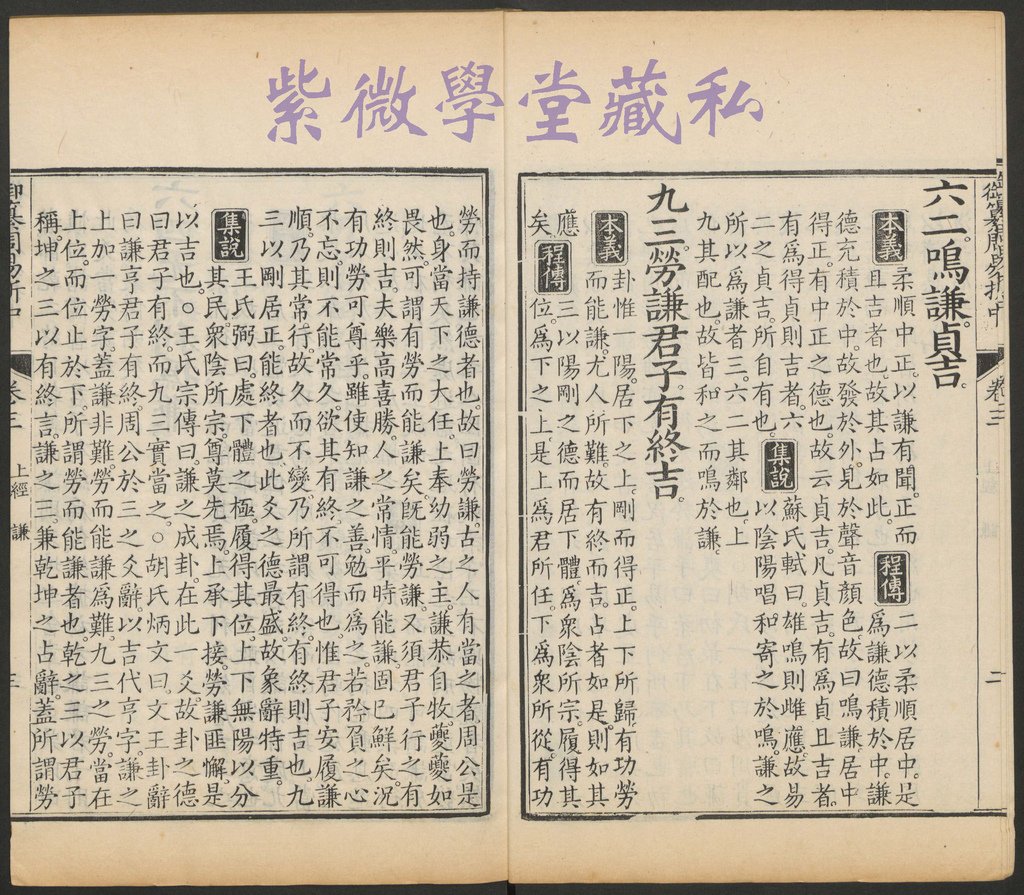 紫微學堂藏私
卷三
二
六二。鳴謙。貞吉。
本義 柔順中正。以謙有聞。正而
且吉者也。故其占如此。
程傳 二以柔順居中。是
爲謙德積於中。謙
德充積於中。故發於外。見於聲音顏色。故曰鳴謙。居中
得正。有中正之德也。故云貞吉。凡貞吉。有爲貞且吉者。
有爲得貞則吉者。六
二之貞吉。所自有也。
集說 蘇氏軾曰。雄鳴則雌應。故易
以陰陽唱和寄之於鳴。謙之
所以爲謙者三。六二其鄰也。上
九其配也。故皆和之而鳴於謙。
九三。勞謙君子。有終吉。
本義 卦惟一陽。居下之上。剛而得正。上下所歸。有功勞
而能謙。尤人所難。故有終而吉。占者如是。則如其
應
矣。
程傳 三以陽剛之德而居下體。爲衆陰所宗。履得其
位。爲下之上。是上爲君所任。下爲衆所從。有功
勞而持謙德者也。故曰勞謙。古之人有當之者。周公是
也。身當天下之大任。上奉幼弱之主。謙恭自牧。夔夔如
畏然。可謂有勞而能謙矣。旣能勞謙。又須君子行之有
終則吉。夫樂高喜勝。人之常情。平時能謙。固已鮮矣。況
有功勞可尊乎。雖使知謙之善。勉而爲之。若矜負之心
不忘。則不能常久。欲其有終。不可得也。惟君子安履謙
順。乃其常行。故久而不變。乃所謂有終。有終則吉也。九
三以剛居正。能終者也。此爻之德最盛。故象辭特重。
集說 王氏弼曰。處下體之極。履得其位。上下無陽以分
其民。衆陰所宗。尊莫先焉。上承下接。勞謙匪懈。是
以吉也。○王氏宗傳曰。謙之成卦。在此一爻。故卦之德
曰君子有終。而九三實當之。○胡氏炳文曰。文王卦辭
曰謙亨君子有終。周公於三之爻辭。以吉代亨字。謙之
上加一勞字。蓋謙非難。勞而能謙爲難。九三之勞。當在
上位。而位止於下。所謂勞而能謙者也。乾之三以君子
稱。坤之三以有終言。謙之三兼乾坤之占辭。蓋所謂勞
卷三 上經 謙
三